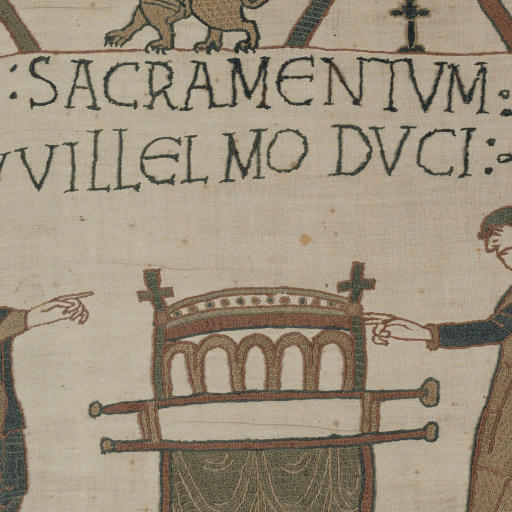 :SACRAMENTUM:
VVILLELMO DVCI: